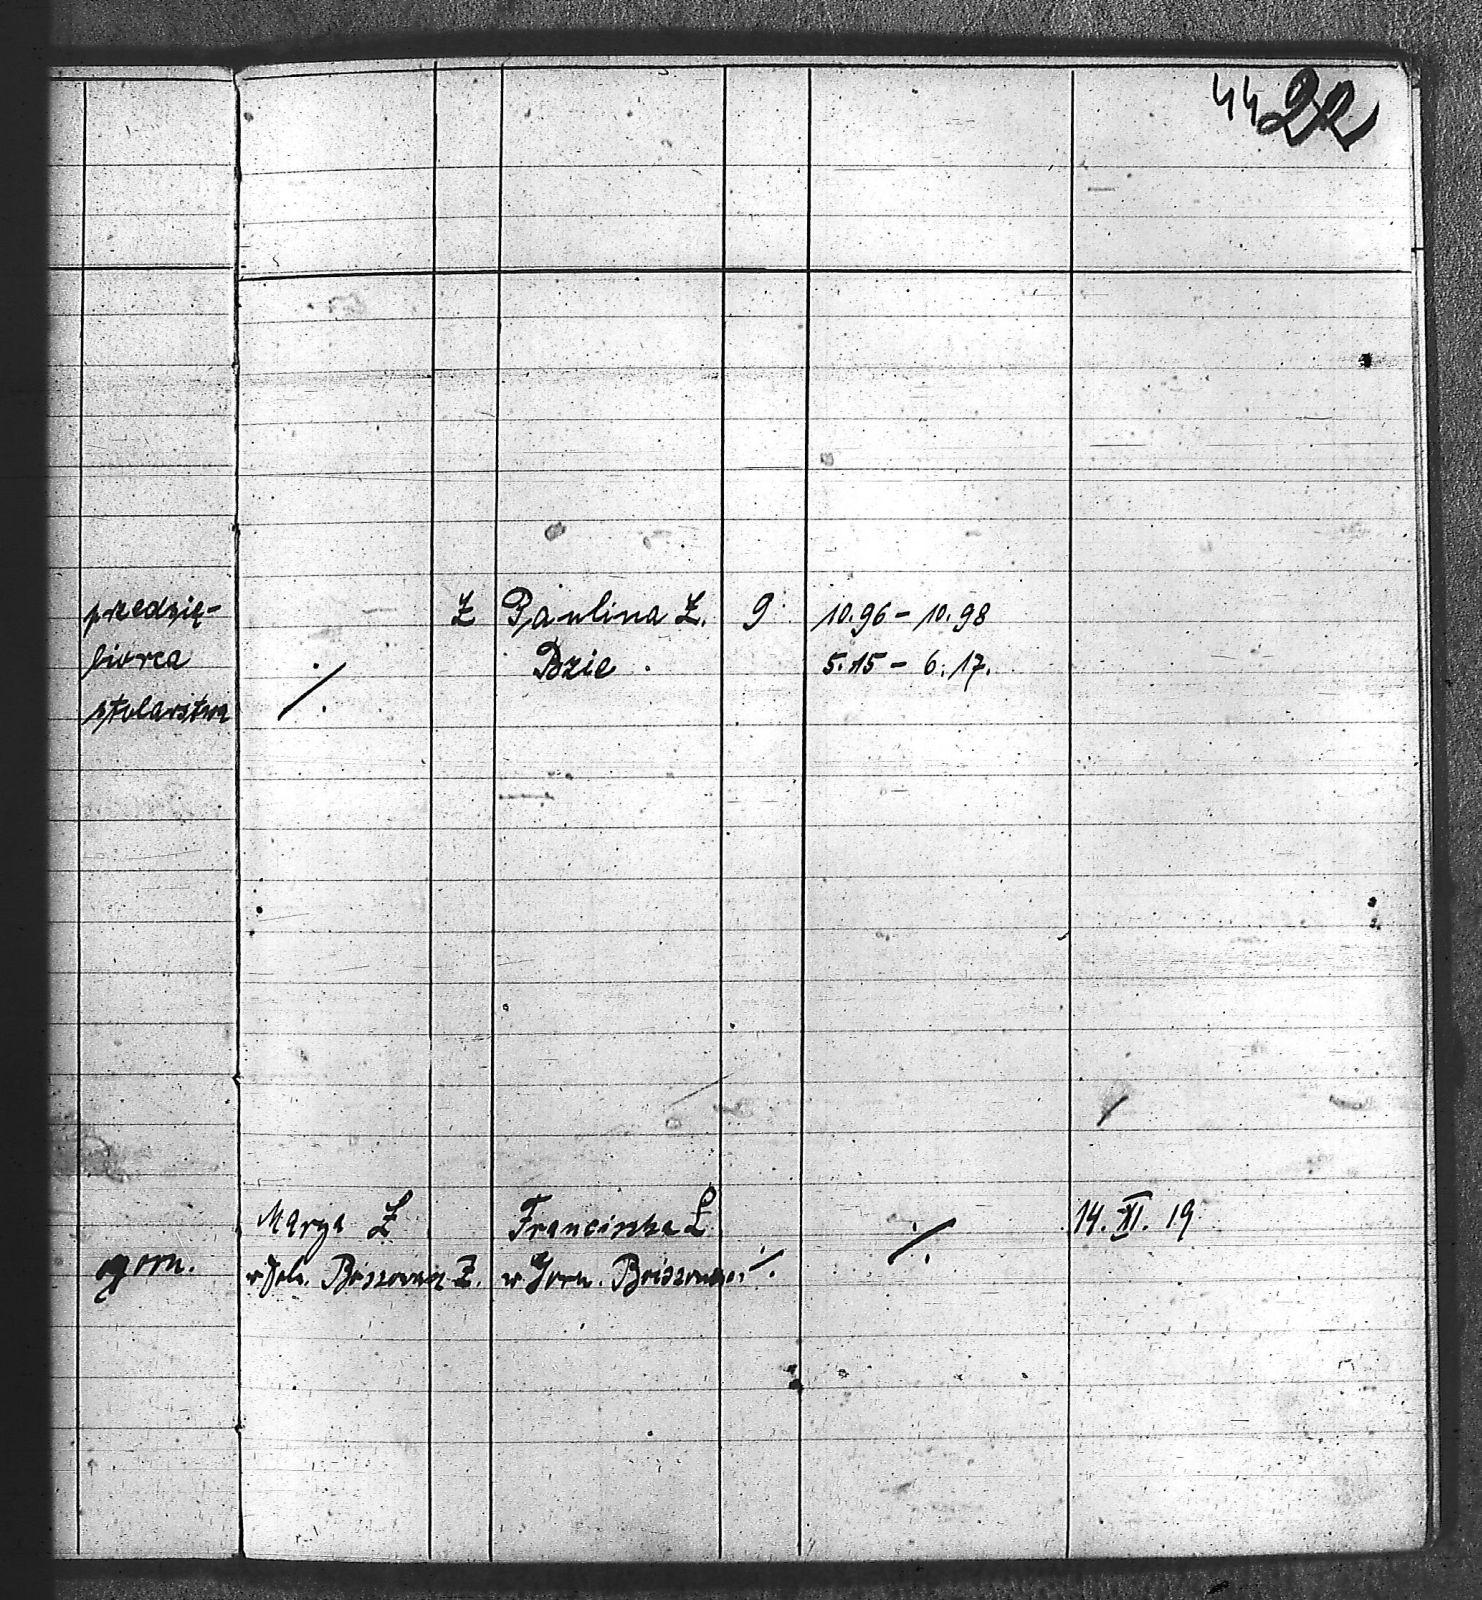 44 22
przedzię- Ż Paulina Ż. 9 10.96 – 10.98
biorca ./. Bzie 5.15 – 6.17.
stolarstwa
Marya Ż Franciszka Ż ./. 14. XI. 19
gorn. w Dol. Ż. w Gorn. ./.